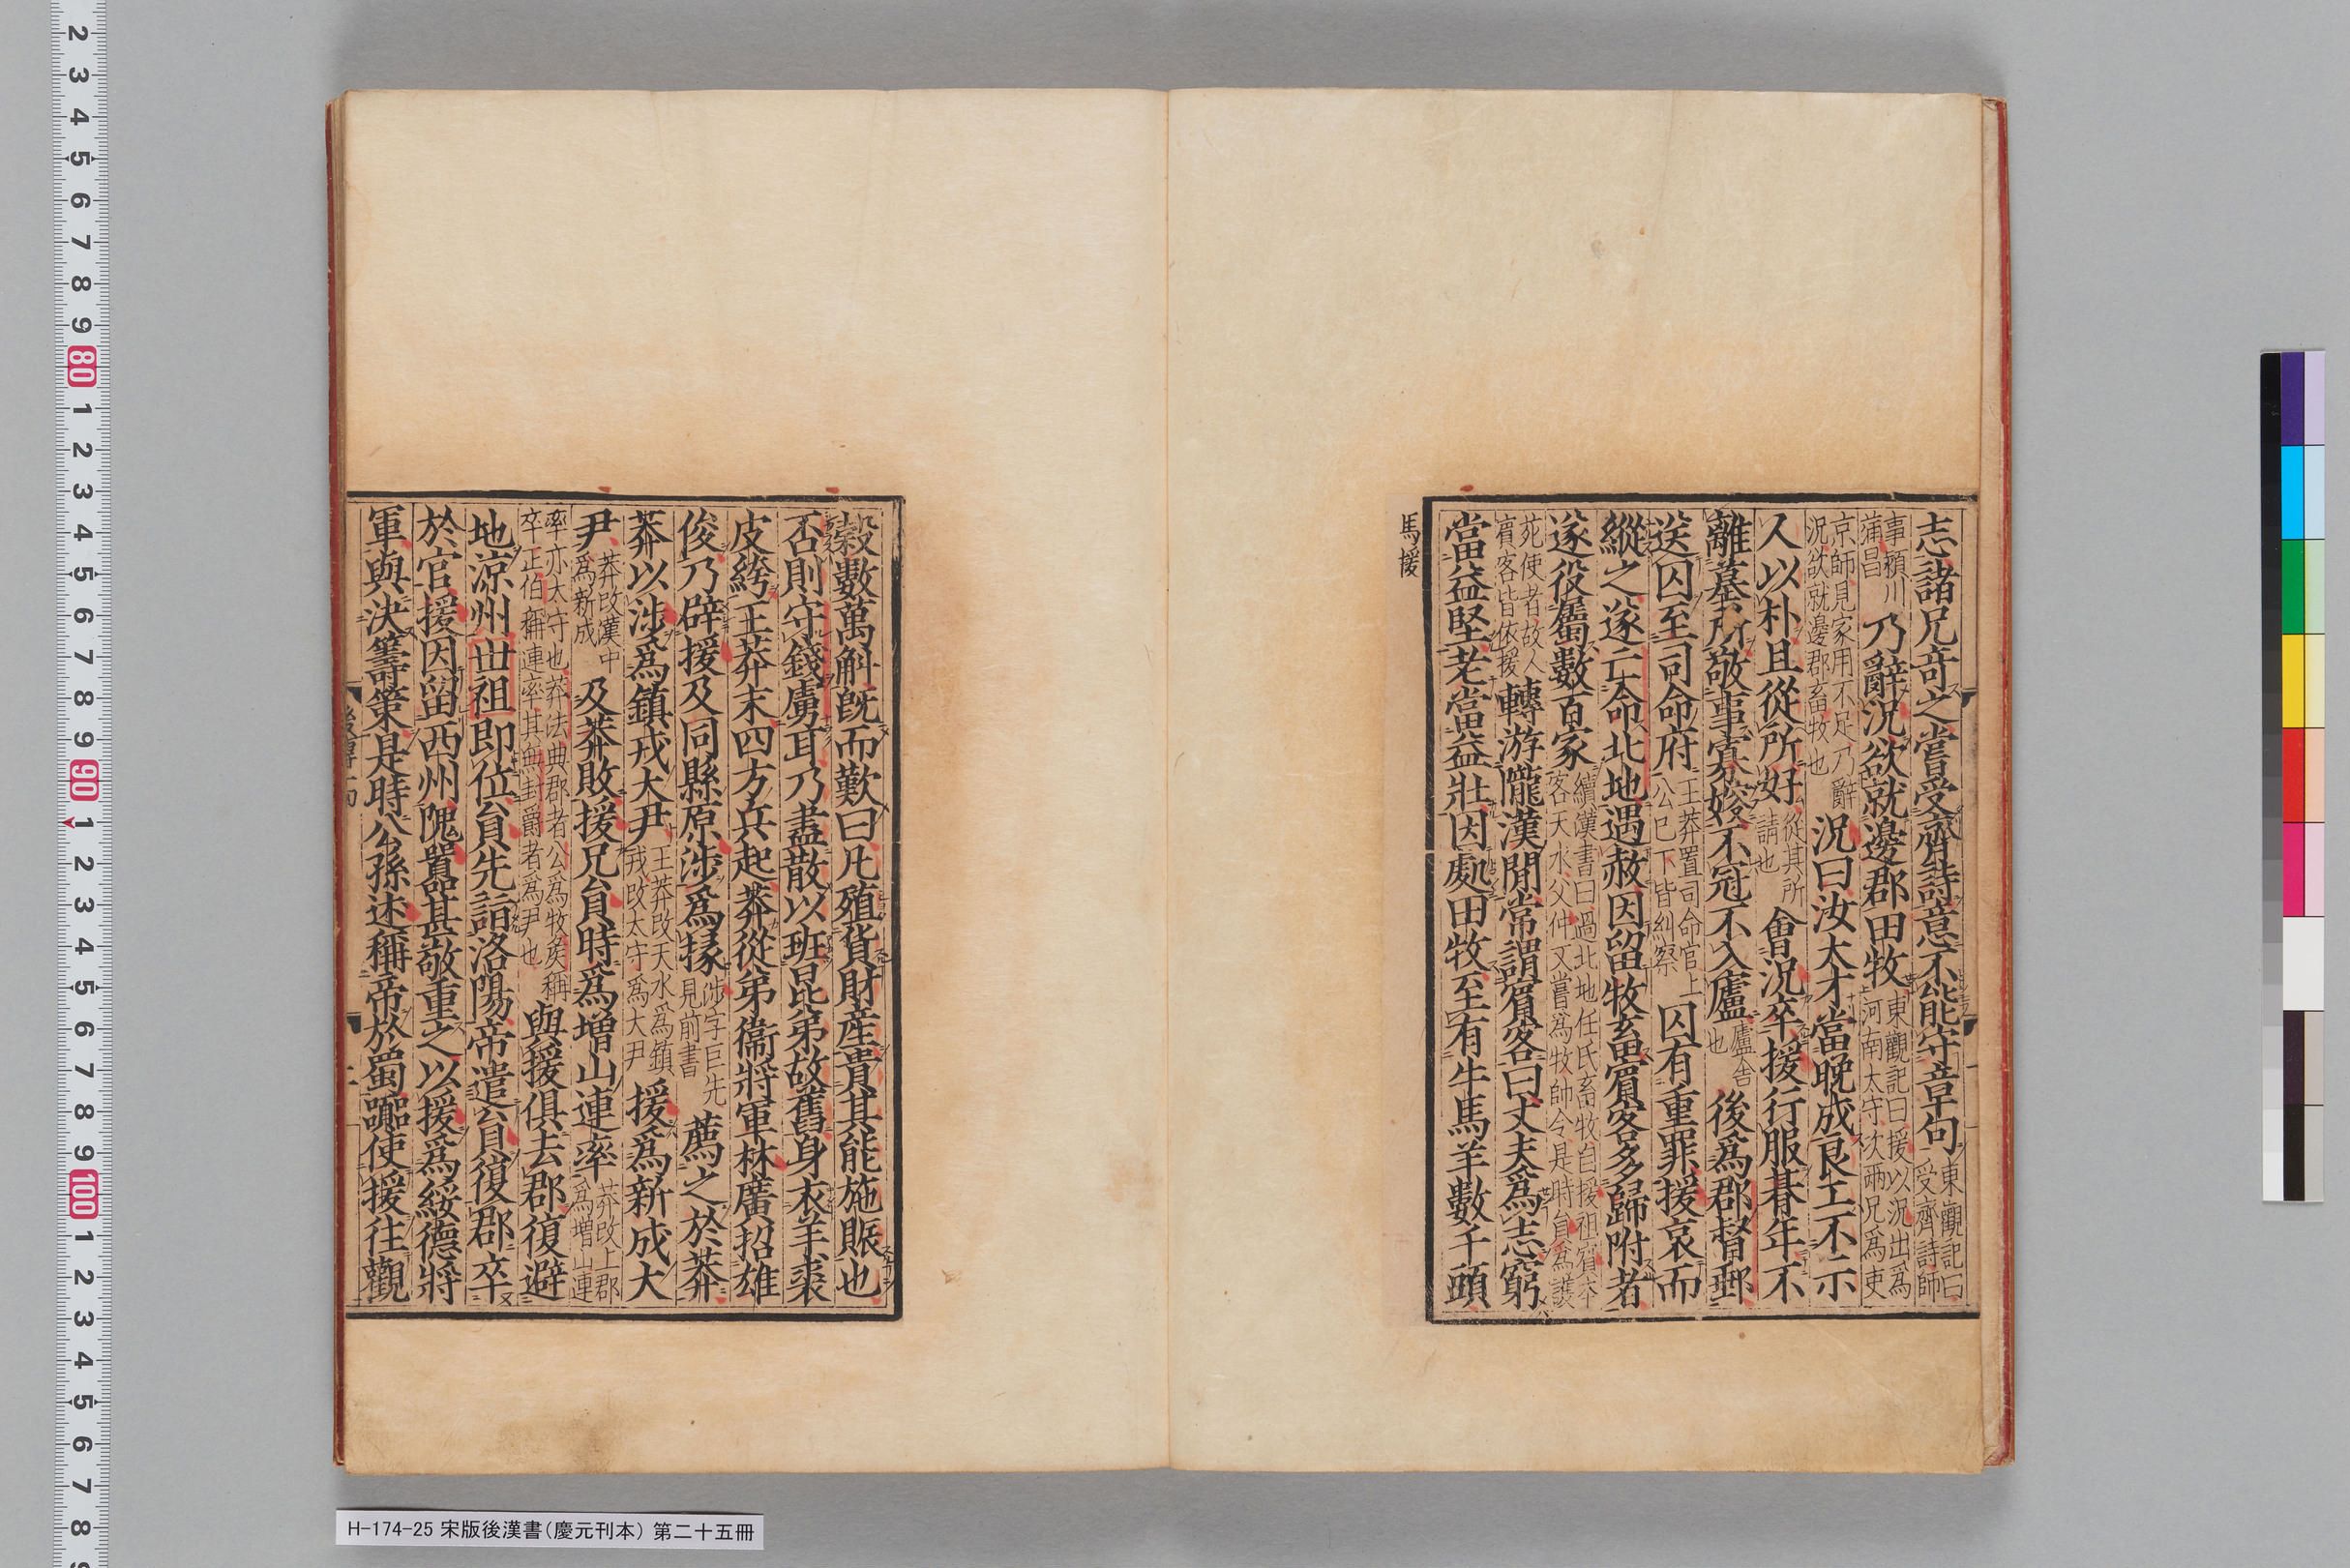 志諸兄竒之嘗受齊詩意不能守章句東觀記曰受齊詩師
事潁川蒲昌乃辭況欲就邊郡田牧東觀記曰援以況出為河南太守次兩兄為吏
京師見家用不足乃辭況欲就邊郡畜牧也況曰汝大才當晚成良工不示
人以朴且從所好從其所請也會況卒援行服朞年不
離墓所敬事寡嫂不冠不入廬廬舍也後為郡督郵
送囚至司命府王莽置司命官上公已下皆糾察囚有重罪援哀而
縱之遂亡命北地遇赦因留牧畜賔客多歸附者
遂役屬數百家續漢書曰過北地任氏畜牧自援祖賔本客天水父仲又嘗為牧帥令是時貟為護
苑使者故人賔客皆依援轉游隴漢閒常謂賔客曰丈夫為志窮
當益堅老當益壯因處田牧至有牛馬羊數千頭
馬援
榖數萬斛旣而歎曰凡殖貨財産貴其能施賑也
否則守錢虜耳乃盡散以班昆弟故舊身衣羊裘
皮絝王莽末四方兵起莽從弟衞將軍林廣招雄
俊乃辟援及同縣原涉為掾涉字巨先見前書薦之於莽
莽以涉為鎮戎大尹王莽改天水為鎮戎改太守為大尹援為新成大
尹莽改漢中為新成及莽敗援兄貟時為增山連率莽改上郡為增山連
率亦太守也莽法典郡者公為牧矦稱卒正伯稱連率其無封爵者為尹也與援俱去郡復避
地涼州丗祖即位貟先詣洛陽帝遣貟復郡卒
於官援因留西州隗囂甚敬重之以援為綏德將
軍與決籌策是時公孫述稱帝於蜀囂使援往觀
H-174-25 宋版後漢書(慶元刊本) 第二十五冊